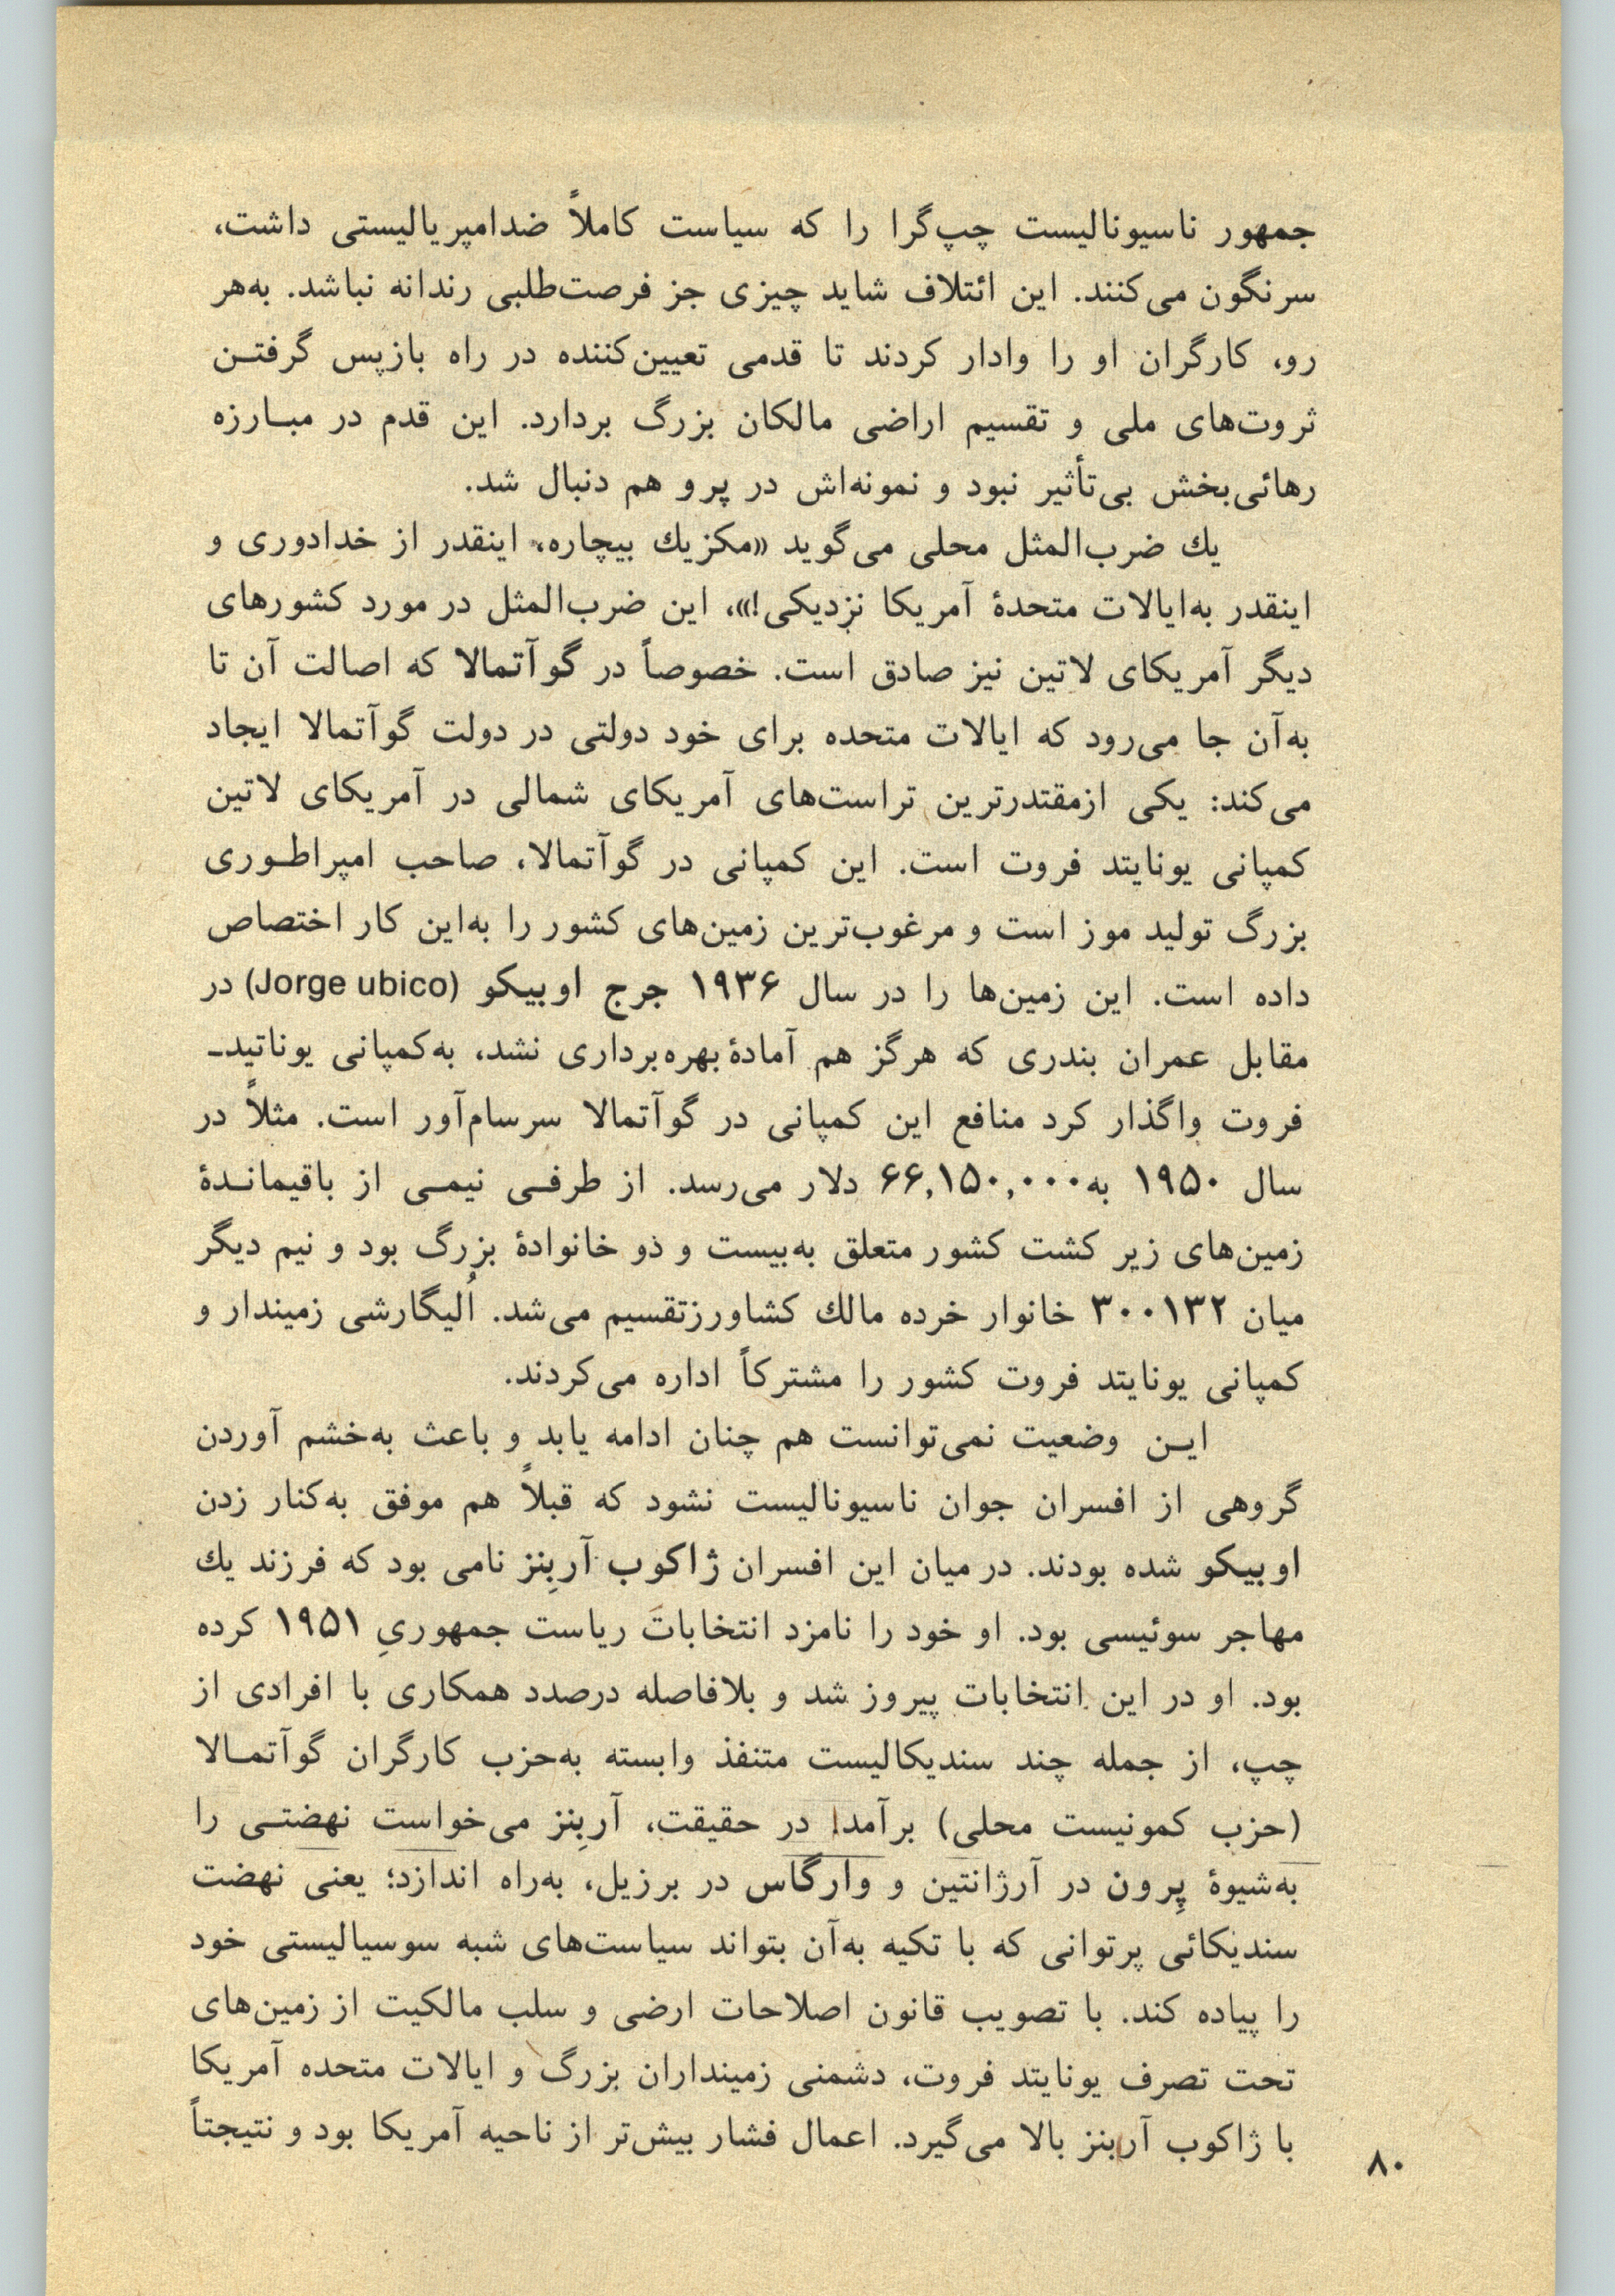 جمهور ناسیونالیست چپ‌گرا را که سیاست کاملاً ضدامپریالیستی داشت،
سرنگون می‌کنند. این ائتلاف شاید چیزی جز فرصت‌طلبی رندانه نباشد. به‌هر
رو، کارگران او را وادار کردند تا قدمی تعیین‌کننده در راه بازپس گرفتـن
ثروت‌های ملی و تقسیم اراضی مالکان بزرگ بردارد. این قدم در مبـارزه
رهائی‌بخش بی‌تأثیر نبود و نمونه‌اش در پرو هم دنبال شد.
یك ضرب‌المثل محلی می‌گوید «مکزیك بیچاره، اینقدر از خدادوری و
اینقدر به‌ایالات متحدهٔ آمریکا نزدیکی!»، این ضرب‌المثل در مورد کشورهای
دیگر آمریکای لاتین نیز صادق است. خصوصاً در گوآتمالا که اصالت آن تا
به‌آن جا می‌رود که ایالات متحده برای خود دولتی در دولت گوآتمالا ایجاد
می‌کند: یکی ازمقتدرترین تراست‌های آمریکای شمالی در آمریکای لاتین
کمپانی یونایتد فروت است. این کمپانی در گوآتمالا، صاحب امپراطـوری
بزرگ تولید موز است و مرغوب‌ترین زمین‌های کشور را به‌این کار اختصاص
داده است. این زمین‌ها را در سال ۱۹۳۶ جرج اوبیکو (Jorge ubico) در
مقابل عمران بندری که هرگز هم آمادهٔ بهره‌برداری نشد، به‌کمپانی یوناتیدـ
فروت واگذار کرد منافع این کمپانی در گوآتمالا سرسام‌آور است. مثلاً در
سال ۱۹۵۰ به۶۶,۱۵۰,۰۰۰ دلار می‌رسد. از طرفـی نیمـی از باقیمانـدهٔ
زمین‌های زیر کشت کشور متعلق به‌بیست و ذو خانوادهٔ بزرگ بود و نیم دیگر
میان ۳۰۰۱۳۲ خانوار خرده مالك کشاورزتقسیم می‌شد. اُلیگارشی زمیندار و
کمپانی یونایتد فروت کشور را مشترکاً اداره می‌کردند.
ایـن وضعیت نمی‌توانست هم چنان ادامه یابد و باعث به‌خشم آوردن
گروهی از افسران جوان ناسیونالیست نشود که قبلاً هم موفق به‌کنار زدن
اوبیکو شده بودند. در میان این افسران ژاکوب آربِنز نامی بود که فرزند یك
مهاجر سوئیسی بود. او خود را نامزد انتخابات ریاست جمهوریِ ۱۹۵۱ کرده
بود. او در این انتخابات پیروز شد و بلافاصله درصدد همکاری با افرادی از
چپ، از جمله چند سندیکالیست متنفذ وابسته به‌حزب کارگران گوآتمـالا
(حزب کمونیست محلی) برآمد! در حقیقت، آربِنز می‌خواست نهضتـی را
به‌شیوهٔ پِرون در آرژانتین و وارگاس در برزیل، به‌راه اندازد؛ یعنی نهضت
سندیکائی پرتوانی که با تکیه به‌آن بتواند سیاست‌های شبه سوسیالیستی خود
را پیاده کند. با تصویب قانون اصلاحات ارضی و سلب مالکیت از زمین‌های
تحت تصرف یونایتد فروت، دشمنی زمینداران بزرگ و ایالات متحده آمریکا
با ژاکوب آربنز بالا می‌گیرد. اعمال فشار بیش‌تر از ناحیه آمریکا بود و نتیجتاً
۸۰